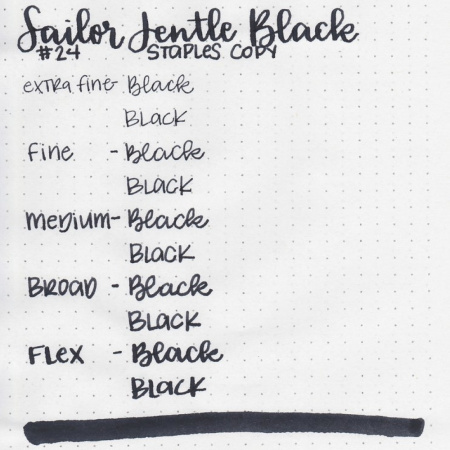 Sailor Jentle Black
#24 STAPLES COPY
extra fine- Black
BLACK
Fine - Black
BLACK
medium- Black
BLACK
BROAD - Black
BLACK
FLEX - Black
BLACK